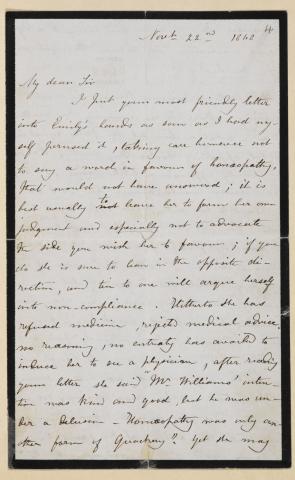 Novbr 22nd 1848
4
My dear Sir
I put your most friendly letter
into Emily's hands as soon as I had my-
self perused it, taking care however not
to say a word in favour of homœopathy,
that would not have answered; it is
best usually to leave her to form her own
judgment and especially not to advocate
the side you wish her to favour; if you
do she is sure to lean in the opposite di-
rection, and ten to one will argue herself
into non-compliance. Hitherto she has
refused medicine, rejected medical advice
no reasoning, no entreaty has availed to
induce her to see a physician, after reading
your letter she said "Mr Williams' inten-
tion was kind and good, but he was un-
der a delusion - Homœopathy was only ano-
ther form of Quackery." Yet she may